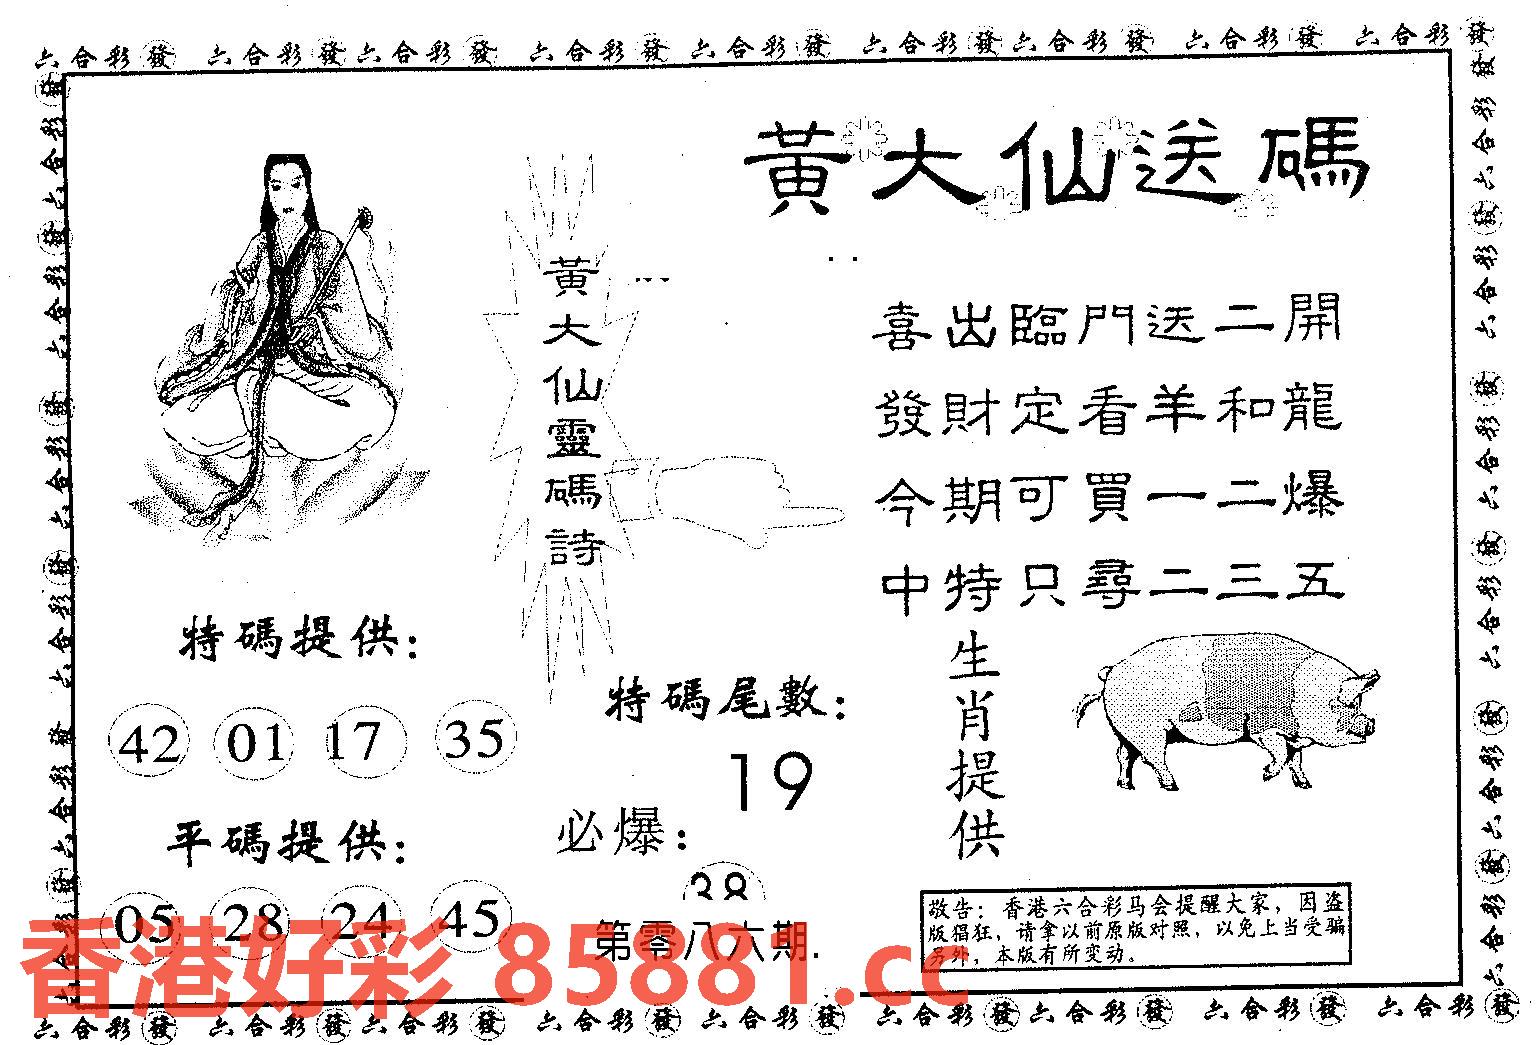 六合彩發 六合彩發 六合彩發 六合彩發 六合彩發 六合彩發 六合彩發 六合彩發 六合彩發
黃大仙送碼
黃大仙靈碼詩
喜出臨門送二開
發財定看羊和龍
今期可買一二爆
中特只尋二三五
特碼提供：
42 01 17 35
平碼提供：
05 28 24 45
特碼尾數：
19
必爆：
38
第零八六期.
生肖提供
敬告：香港六合彩马会提醒大家，因盗
版猖狂，请拿以前原版对照，以免上当受骗
另外，本版有所变动。
香港好彩 85881.cc
六合彩發 六合彩發 六合彩發 六合彩發 六合彩發 六合彩發 六合彩發 六合彩發 六合彩發